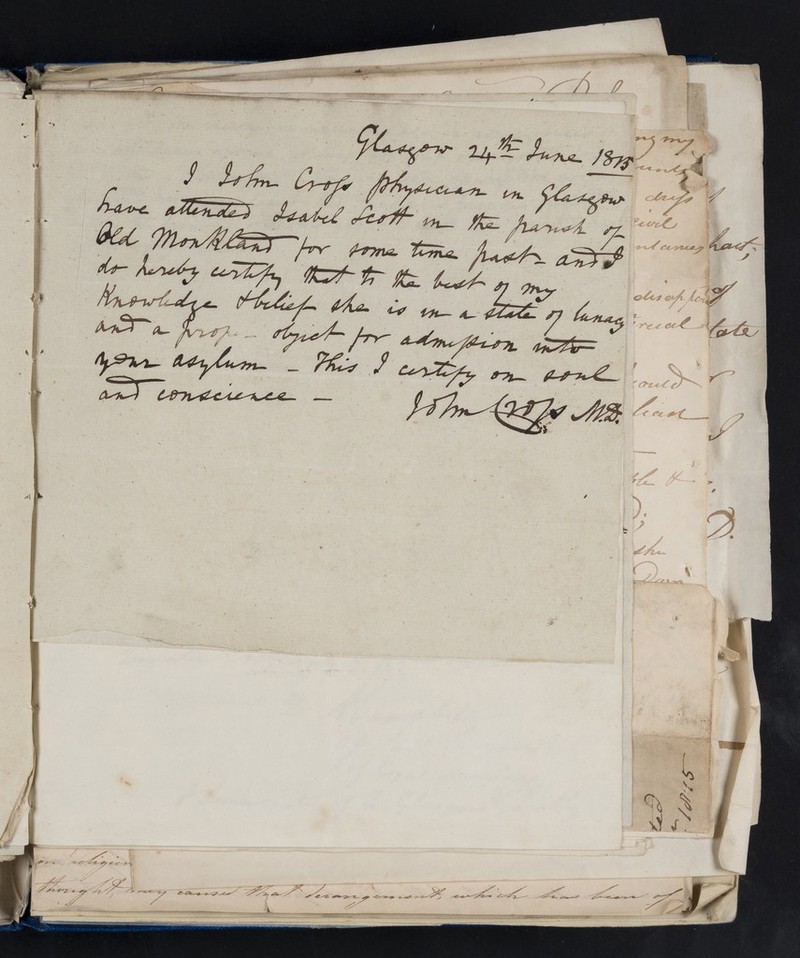 Glasgow 24th June 1815
I John Cross Physician in Glasgow
have attended Isabel Scott in the parish of
Old Monkland for some time past - and I
do hereby certify that to the best of my
Knowledge & belief she is in a state of lunacy
and a prop- object for admission into
your asylum - This I certify on soul
and conscience -
John Cross M.D.
ng my
dress
civil
disappoin
ould
she
hast,
of
late
r
I
D.
ted
1815
on religion
thought may caused that derangement which has been of